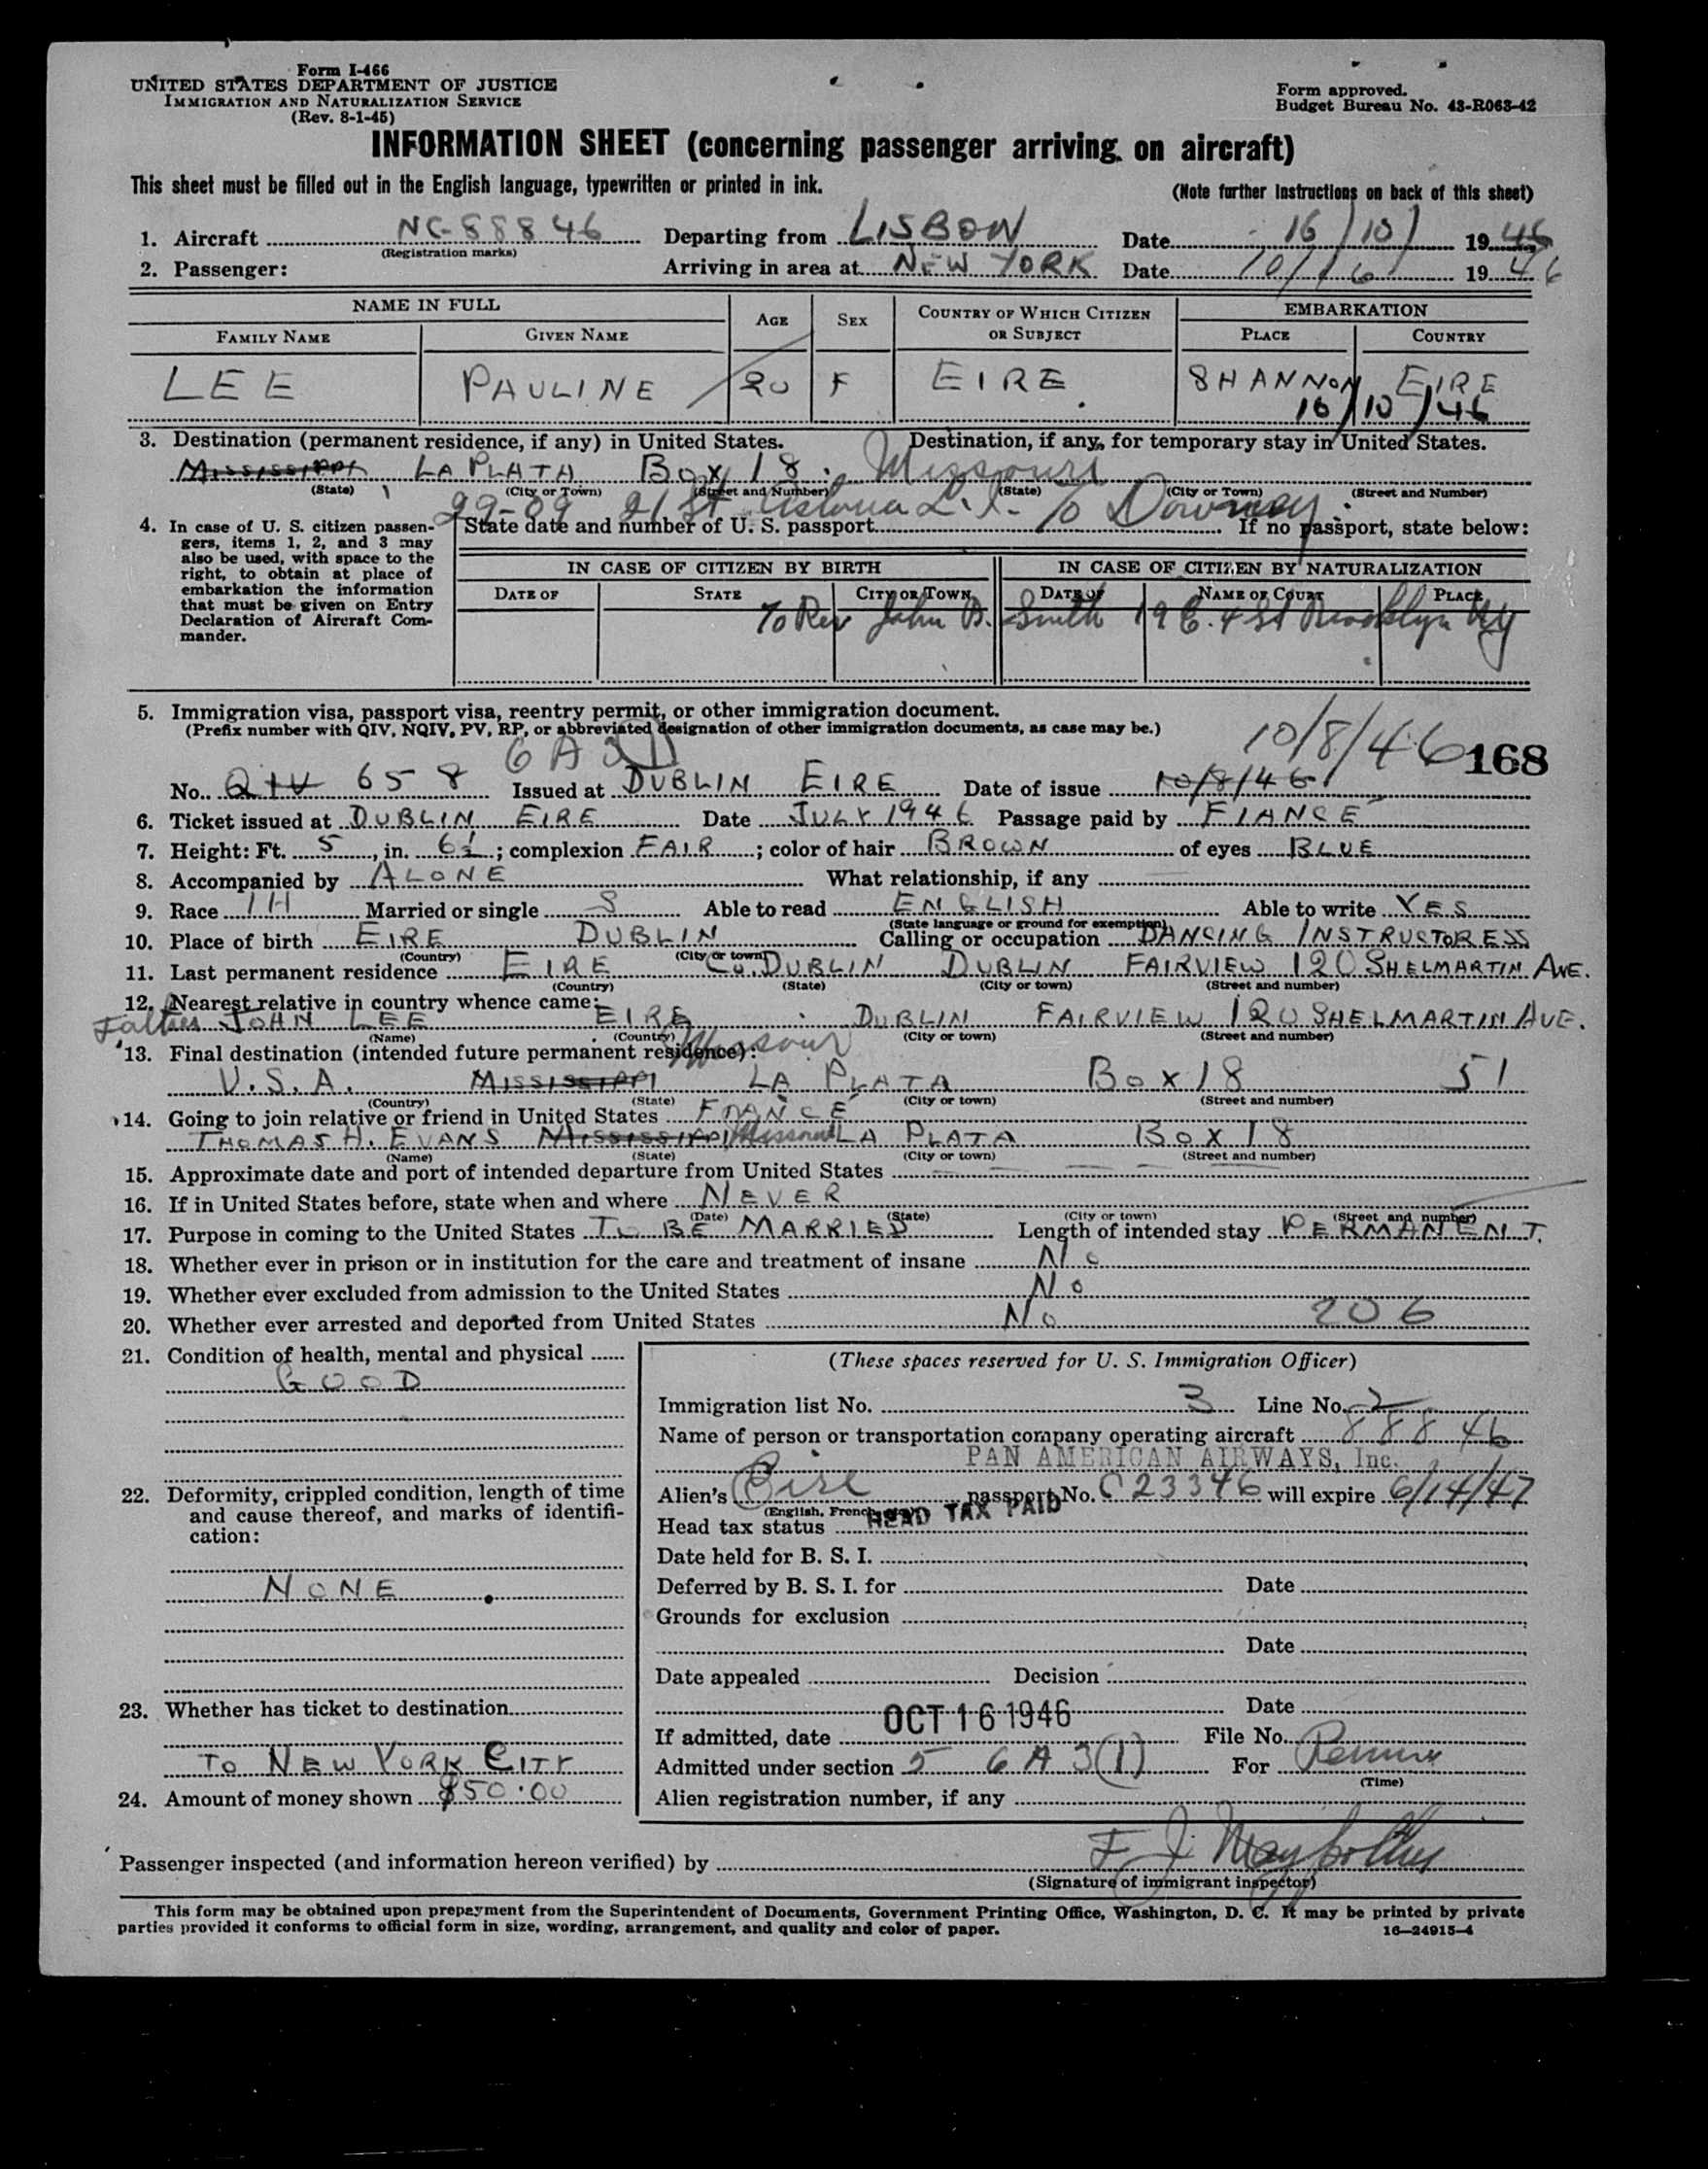 Form I-466
UNITED STATES DEPARTMENT OF JUSTICE
IMMIGRATION AND NATURALIZATION SERVICE
(Rev. 8-1-45)
Form approved.
Budget Bureau No. 43-R063-42
INFORMATION SHEET (concerning passenger arriving on aircraft)
This sheet must be filled out in the English language, typewritten or printed in ink.
(Note further instructions on back of this sheet)
1. Aircraft NC-88846 Departing from LISBON Date 16/10/ 1946
(Registration marks)
2. Passenger: Arriving in area at NEW YORK Date 10/16 1946
NAME IN FULL AGE SEX COUNTRY OF WHICH CITIZEN OR SUBJECT EMBARKATION
FAMILY NAME GIVEN NAME PLACE COUNTRY
LEE PAULINE 20 F EIRE SHANNON EIRE
16/10/46
3. Destination (permanent residence, if any) in United States. Destination, if any, for temporary stay in United States.
MISSISSIPPI LA PLATA BOX 18. Missouri
(State) (City or Town) (Street and Number) (State) (City or Town) (Street and Number)
29-09 21 St Astoria L.I. c/o Downey
4. In case of U. S. citizen passengers, items 1, 2, and 3 may also be used, with space to the right, to obtain at place of embarkation the information that must be given on Entry Declaration of Aircraft Commander.
State date and number of U. S. passport If no passport, state below:
IN CASE OF CITIZEN BY BIRTH IN CASE OF CITIZEN BY NATURALIZATION
DATE OF STATE CITY OR TOWN DATE OF NAME OF COURT PLACE
c/o Rev John B. Smith 19 E. 4 St Brooklyn NY
5. Immigration visa, passport visa, reentry permit, or other immigration document.
(Prefix number with QIV, NQIV, PV, RP, or abbreviated designation of other immigration documents, as case may be.)
10/8/46 168
6 A 3(1)
No. QIV 658 Issued at DUBLIN EIRE Date of issue 10/8/46
6. Ticket issued at DUBLIN EIRE Date JULY 1946 Passage paid by FIANCE
7. Height: Ft. 5, in. 6½; complexion FAIR; color of hair BROWN of eyes BLUE
8. Accompanied by ALONE What relationship, if any
9. Race IH Married or single S Able to read ENGLISH Able to write YES
(State language or ground for exemption)
10. Place of birth EIRE DUBLIN Calling or occupation DANCING INSTRUCTORESS
(Country) (City or town)
11. Last permanent residence EIRE CO. DUBLIN DUBLIN FAIRVIEW 120 SHELMARTIN AVE.
(Country) (State) (City or town) (Street and number)
12. Nearest relative in country whence came:
Father JOHN LEE EIRE DUBLIN FAIRVIEW 120 SHELMARTIN AVE.
(Name) (Country) (City or town) (Street and number)
13. Final destination (intended future permanent residence): Missouri
U.S.A. MISSISSIPPI LA PLATA BOX 18 51
(Country) (State) (City or town) (Street and number)
14. Going to join relative or friend in United States FIANCE
THOMAS H. EVANS MISSISSIPPI Missouri LA PLATA BOX 18
(Name) (State) (City or town) (Street and number)
15. Approximate date and port of intended departure from United States
16. If in United States before, state when and where NEVER
(Date) (State) (City or town) (Street and number)
17. Purpose in coming to the United States TO BE MARRIED Length of intended stay PERMANENT.
18. Whether ever in prison or in institution for the care and treatment of insane No
19. Whether ever excluded from admission to the United States No
20. Whether ever arrested and deported from United States No 206
21. Condition of health, mental and physical
GOOD
22. Deformity, crippled condition, length of time and cause thereof, and marks of identification:
NONE
23. Whether has ticket to destination
TO NEW YORK CITY
24. Amount of money shown $50.00
(These spaces reserved for U. S. Immigration Officer)
Immigration list No. 3 Line No. 2
Name of person or transportation company operating aircraft 88846
PAN AMERICAN AIRWAYS, Inc.
Alien's Eire passport No. C23346 will expire 6/14/47
(English, French
Head tax status HEAD TAX PAID
Date held for B. S. I.
Deferred by B. S. I. for Date
Grounds for exclusion
Date
Date appealed Decision
Date
If admitted, date OCT 16 1946 File No.
Admitted under section 5 6 A 3(1) For
(Time)
Alien registration number, if any
Passenger inspected (and information hereon verified) by F J
(Signature of immigrant inspector)
This form may be obtained upon prepayment from the Superintendent of Documents, Government Printing Office, Washington, D. C. It may be printed by private
parties provided it conforms to official form in size, wording, arrangement, and quality and color of paper. 16—24915-4